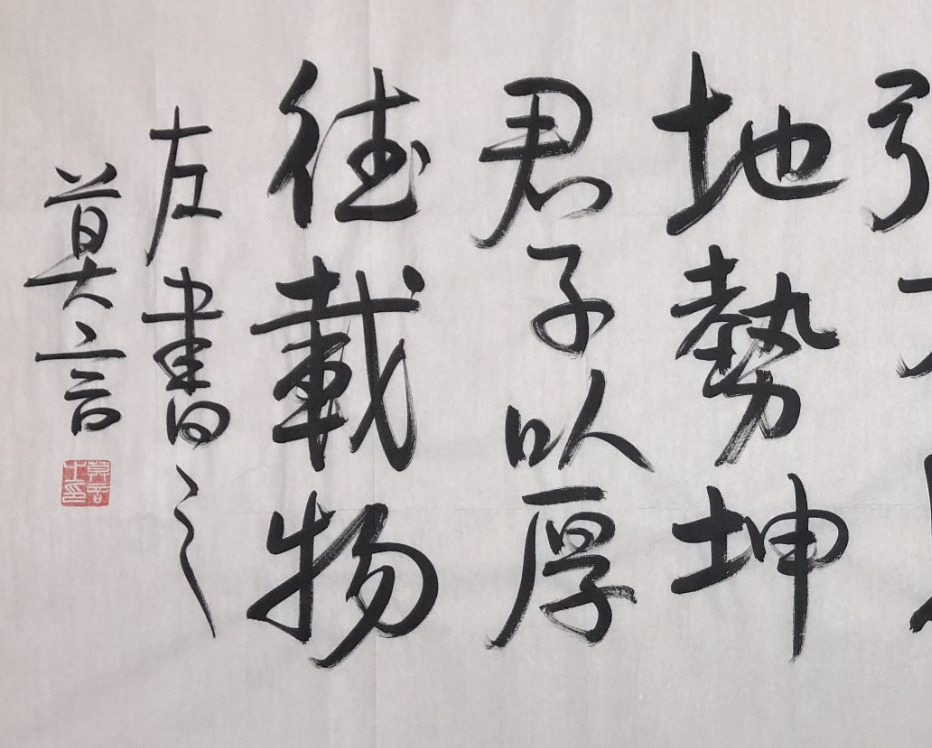 地勢坤
君子以厚
德載物
左書之
莫言